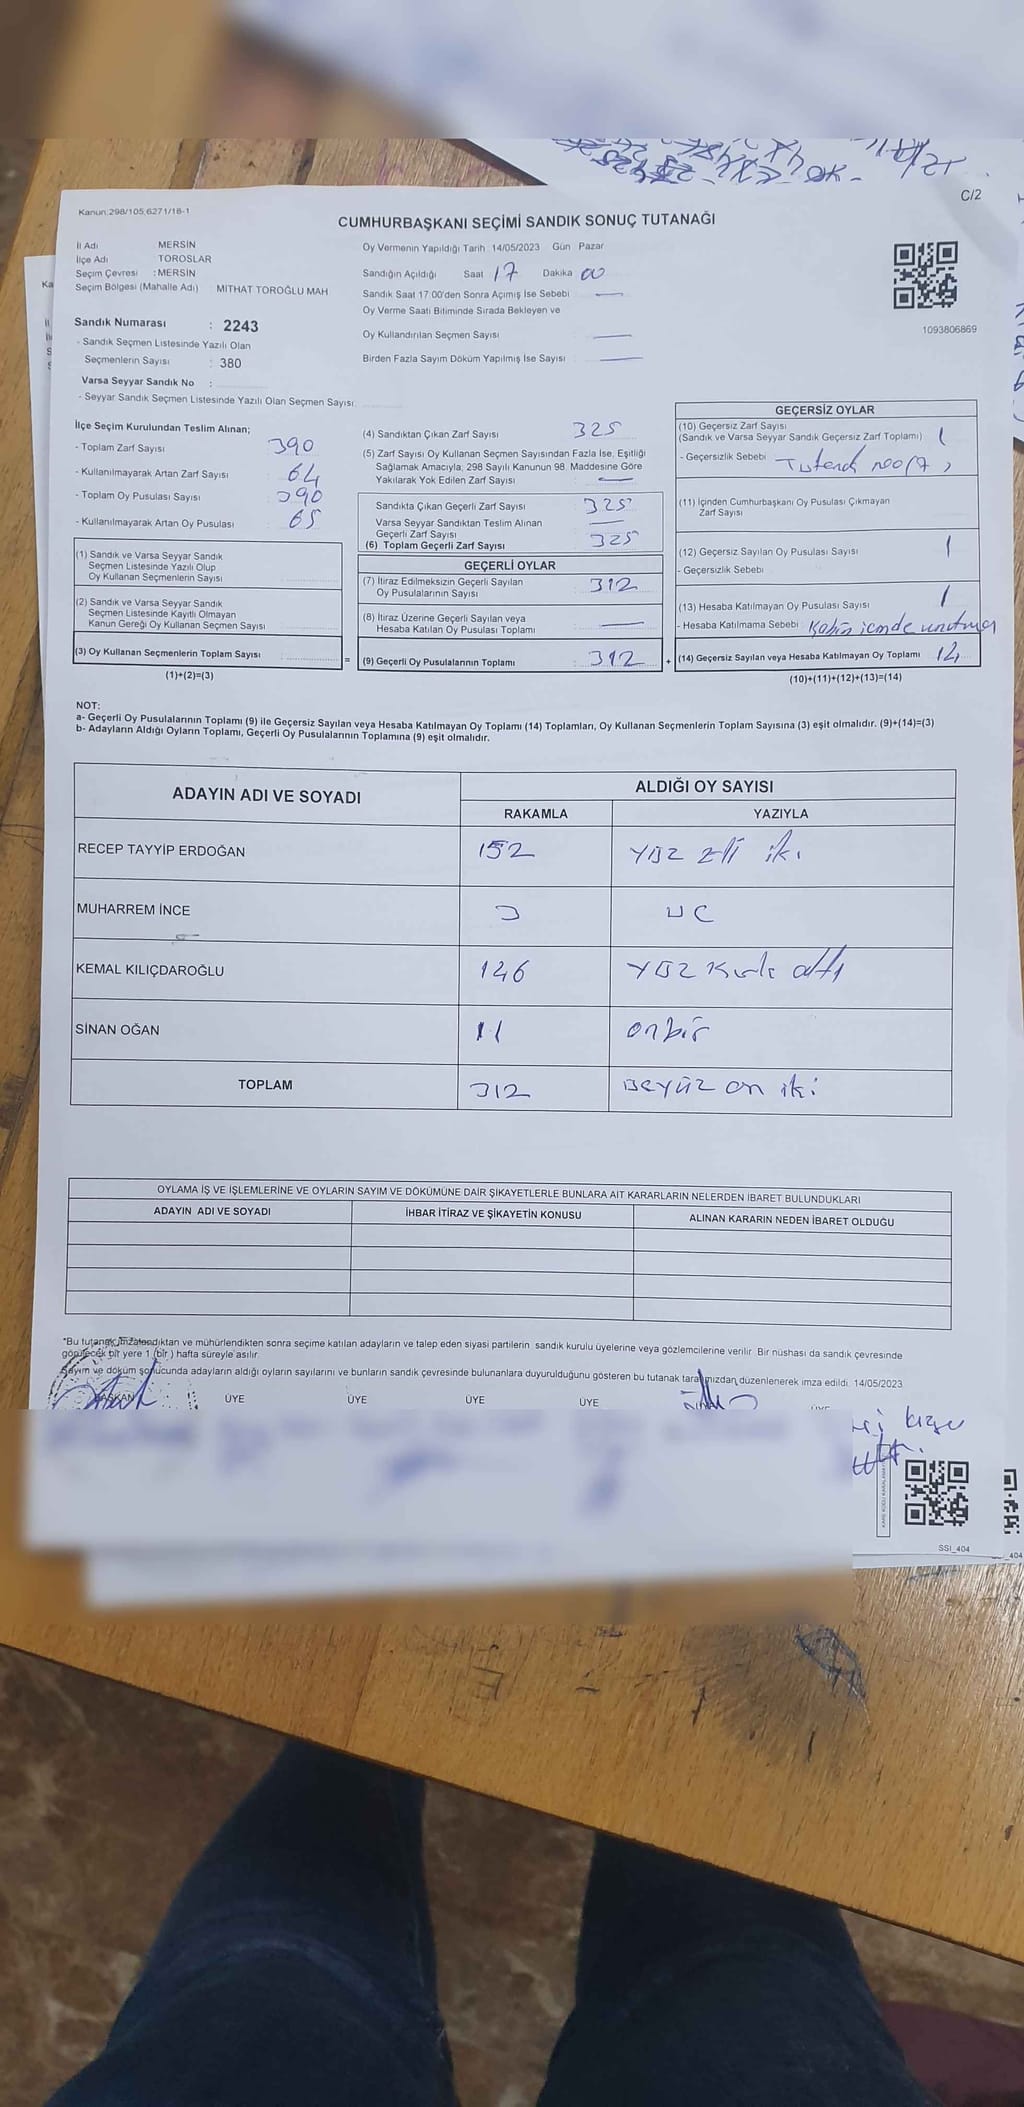 C/2
Kanun:298/105,6271/18-1
CUMHURBAŞKANI SEÇİMİ SANDIK SONUÇ TUTANAĞI
İl Adı MERSİN
İlçe Adı TOROSLAR
Seçim Çevresi : MERSİN
Seçim Bölgesi (Mahalle Adı) MİTHAT TOROĞLU MAH
Sandık Numarası : 2243
- Sandık Seçmen Listesinde Yazılı Olan
Seçmenlerin Sayısı : 380
Varsa Seyyar Sandık No :
- Seyyar Sandık Seçmen Listesinde Yazılı Olan Seçmen Sayısı
Oy Vermenin Yapıldığı Tarih 14/05/2023 Gün Pazar
Sandığın Açıldığı Saat 17 Dakika 00
Sandık Saat 17:00'den Sonra Açımış İse Sebebi —
Oy Verme Saati Bitiminde Sırada Bekleyen ve
Oy Kullandırılan Seçmen Sayısı —
Birden Fazla Sayım Döküm Yapılmış İse Sayısı —
1093806869
İlçe Seçim Kurulundan Teslim Alınan;
- Toplam Zarf Sayısı 390
- Kullanılmayarak Artan Zarf Sayısı 64
- Toplam Oy Pusulası Sayısı 390
- Kullanılmayarak Artan Oy Pusulası 65
(1) Sandık ve Varsa Seyyar Sandık
Seçmen Listesinde Yazılı Olup
Oy Kullanan Seçmenlerin Sayısı
(2) Sandık ve Varsa Seyyar Sandık
Seçmen Listesinde Kayıtlı Olmayan
Kanun Gereği Oy Kullanan Seçmen Sayısı
(3) Oy Kullanan Seçmenlerin Toplam Sayısı
(1)+(2)=(3)
(4) Sandıktan Çıkan Zarf Sayısı 325
(5) Zarf Sayısı Oy Kullanan Seçmen Sayısından Fazla İse, Eşitliği
Sağlamak Amacıyla, 298 Sayılı Kanunun 98. Maddesine Göre
Yakılarak Yok Edilen Zarf Sayısı —
Sandıkta Çıkan Geçerli Zarf Sayısı 325
Varsa Seyyar Sandıktan Teslim Alınan
Geçerli Zarf Sayısı —
(6) Toplam Geçerli Zarf Sayısı 325
GEÇERLİ OYLAR
(7) İtiraz Edilmeksizin Geçerli Sayılan
Oy Pusulalarının Sayısı 312
(8) İtiraz Üzerine Geçerli Sayılan veya
Hesaba Katılan Oy Pusulası Toplamı —
= (9) Geçerli Oy Pusulalarının Toplamı : 312 +
GEÇERSİZ OYLAR
(10) Geçersiz Zarf Sayısı
(Sandık ve Varsa Seyyar Sandık Geçersiz Zarf Toplamı) 1
- Geçersizlik Sebebi
(11) İçinden Cumhurbaşkanı Oy Pusulası Çıkmayan
Zarf Sayısı
(12) Geçersiz Sayılan Oy Pusulası Sayısı 1
- Geçersizlik Sebebi
(13) Hesaba Katılmayan Oy Pusulası Sayısı 1
- Hesaba Katılmama Sebebi Kabin içinde unutma
(14) Geçersiz Sayılan veya Hesaba Katılmayan Oy Toplamı 14
(10)+(11)+(12)+(13)=(14)
NOT:
a- Geçerli Oy Pusulalarının Toplamı (9) ile Geçersiz Sayılan veya Hesaba Katılmayan Oy Toplamı (14) Toplamları, Oy Kullanan Seçmenlerin Toplam Sayısına (3) eşit olmalıdır. (9)+(14)=(3)
b- Adayların Aldığı Oyların Toplamı, Geçerli Oy Pusulalarının Toplamına (9) eşit olmalıdır.
ADAYIN ADI VE SOYADI ALDIĞI OY SAYISI
RAKAMLA YAZIYLA
RECEP TAYYİP ERDOĞAN 152 yüz elli iki
MUHARREM İNCE 3 üç
KEMAL KILIÇDAROĞLU 146 yüz kırk altı
SİNAN OĞAN 11 onbir
TOPLAM 312 üçyüz on iki
OYLAMA İŞ VE İŞLEMLERİNE VE OYLARIN SAYIM VE DÖKÜMÜNE DAİR ŞİKAYETLERLE BUNLARA AİT KARARLARIN NELERDEN İBARET BULUNDUKLARI
ADAYIN ADI VE SOYADI İHBAR İTİRAZ VE ŞİKAYETİN KONUSU ALINAN KARARIN NEDEN İBARET OLDUĞU
*Bu tutanak imzalandıktan ve mühürlendikten sonra seçime katılan adayların ve talep eden siyasi partilerin sandık kurulu üyelerine veya gözlemcilerine verilir. Bir nüshası da sandık çevresinde
görülecek bir yere 1 (bir) hafta süreyle asılır.
Sayım ve döküm sonucunda adayların aldığı oyların sayılarını ve bunların sandık çevresinde bulunanlara duyurulduğunu gösteren bu tutanak tarafımızdan düzenlenerek imza edildi. 14/05/2023
BAŞKAN ÜYE ÜYE ÜYE ÜYE
SSI_404
_404